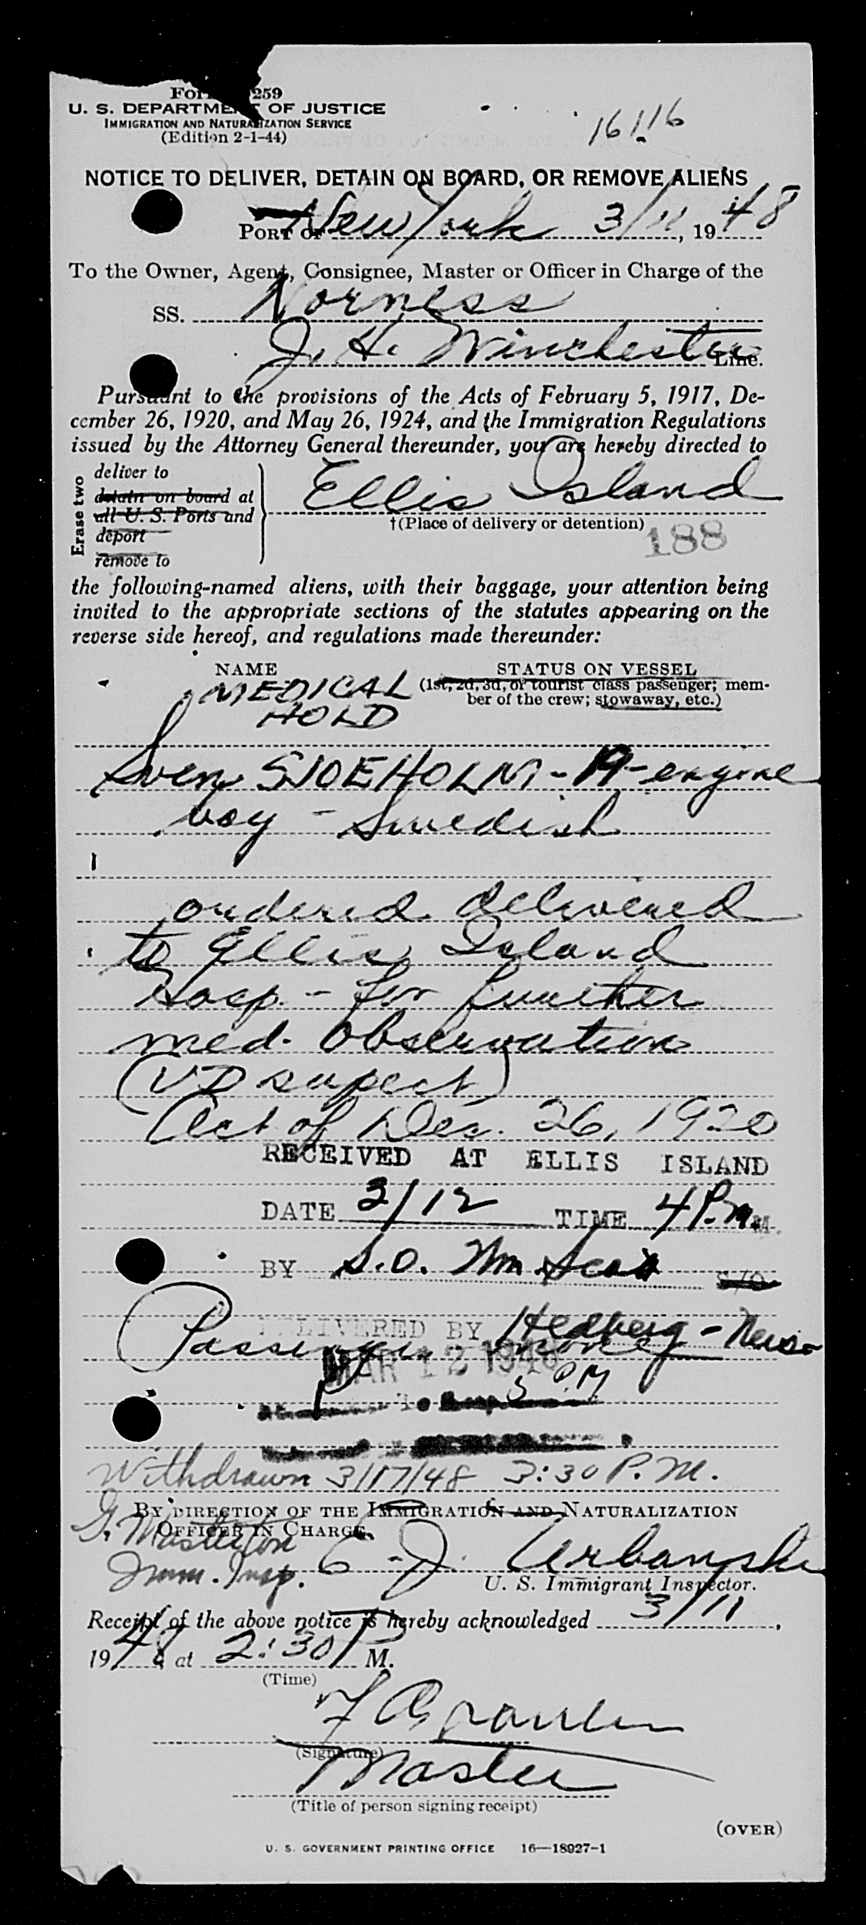 259
U. S. DEPARTMENT OF JUSTICE
IMMIGRATION AND NATURALIZATION SERVICE
(Edition 2-1-44)
16116
NOTICE TO DELIVER, DETAIN ON BOARD, OR REMOVE ALIENS
PORT OF New York 3/11, 1948
To the Owner, Agent, Consignee, Master or Officer in Charge of the
SS. Norness
J. H. Winchester Line.
Pursuant to the provisions of the Acts of February 5, 1917, De-
cember 26, 1920, and May 26, 1924, and the Immigration Regulations
issued by the Attorney General thereunder, you are hereby directed to
Erase two
deliver to
detain on board at
all U. S. Ports and
deport
remove to
Ellis Island
†(Place of delivery or detention)
188
the following-named aliens, with their baggage, your attention being
invited to the appropriate sections of the statutes appearing on the
reverse side hereof, and regulations made thereunder:
NAME STATUS ON VESSEL
(1st, 2d, 3d, or tourist class passenger; mem-
ber of the crew; stowaway, etc.)
MEDICAL
HOLD
Sven SJOEHOLM - 19 - engine
boy - Swedish
ordered delivered
to Ellis Island
Hosp. - for further
med. observation
(VD supect)
Act of Dec. 26, 1920
RECEIVED AT ELLIS ISLAND
DATE 3/12 TIME 4 P.M.
BY S.O. Wm
DELIVERED BY Hedberg -
Passenger money
MAR 12 1948
5 PM
Withdrawn 3/17/48 3:30 P.M.
BY DIRECTION OF THE IMMIGRATION AND NATURALIZATION
OFFICER IN CHARGE.
G. Masterton
Imm. Insp.
C. J. Urbanski
U. S. Immigrant Inspector.
Receipt of the above notice is hereby acknowledged 3/11,
1948 at 2:30 P M.
(Time)
(Signature)
Master
(Title of person signing receipt)
(OVER)
U. S. GOVERNMENT PRINTING OFFICE 16—18927-1